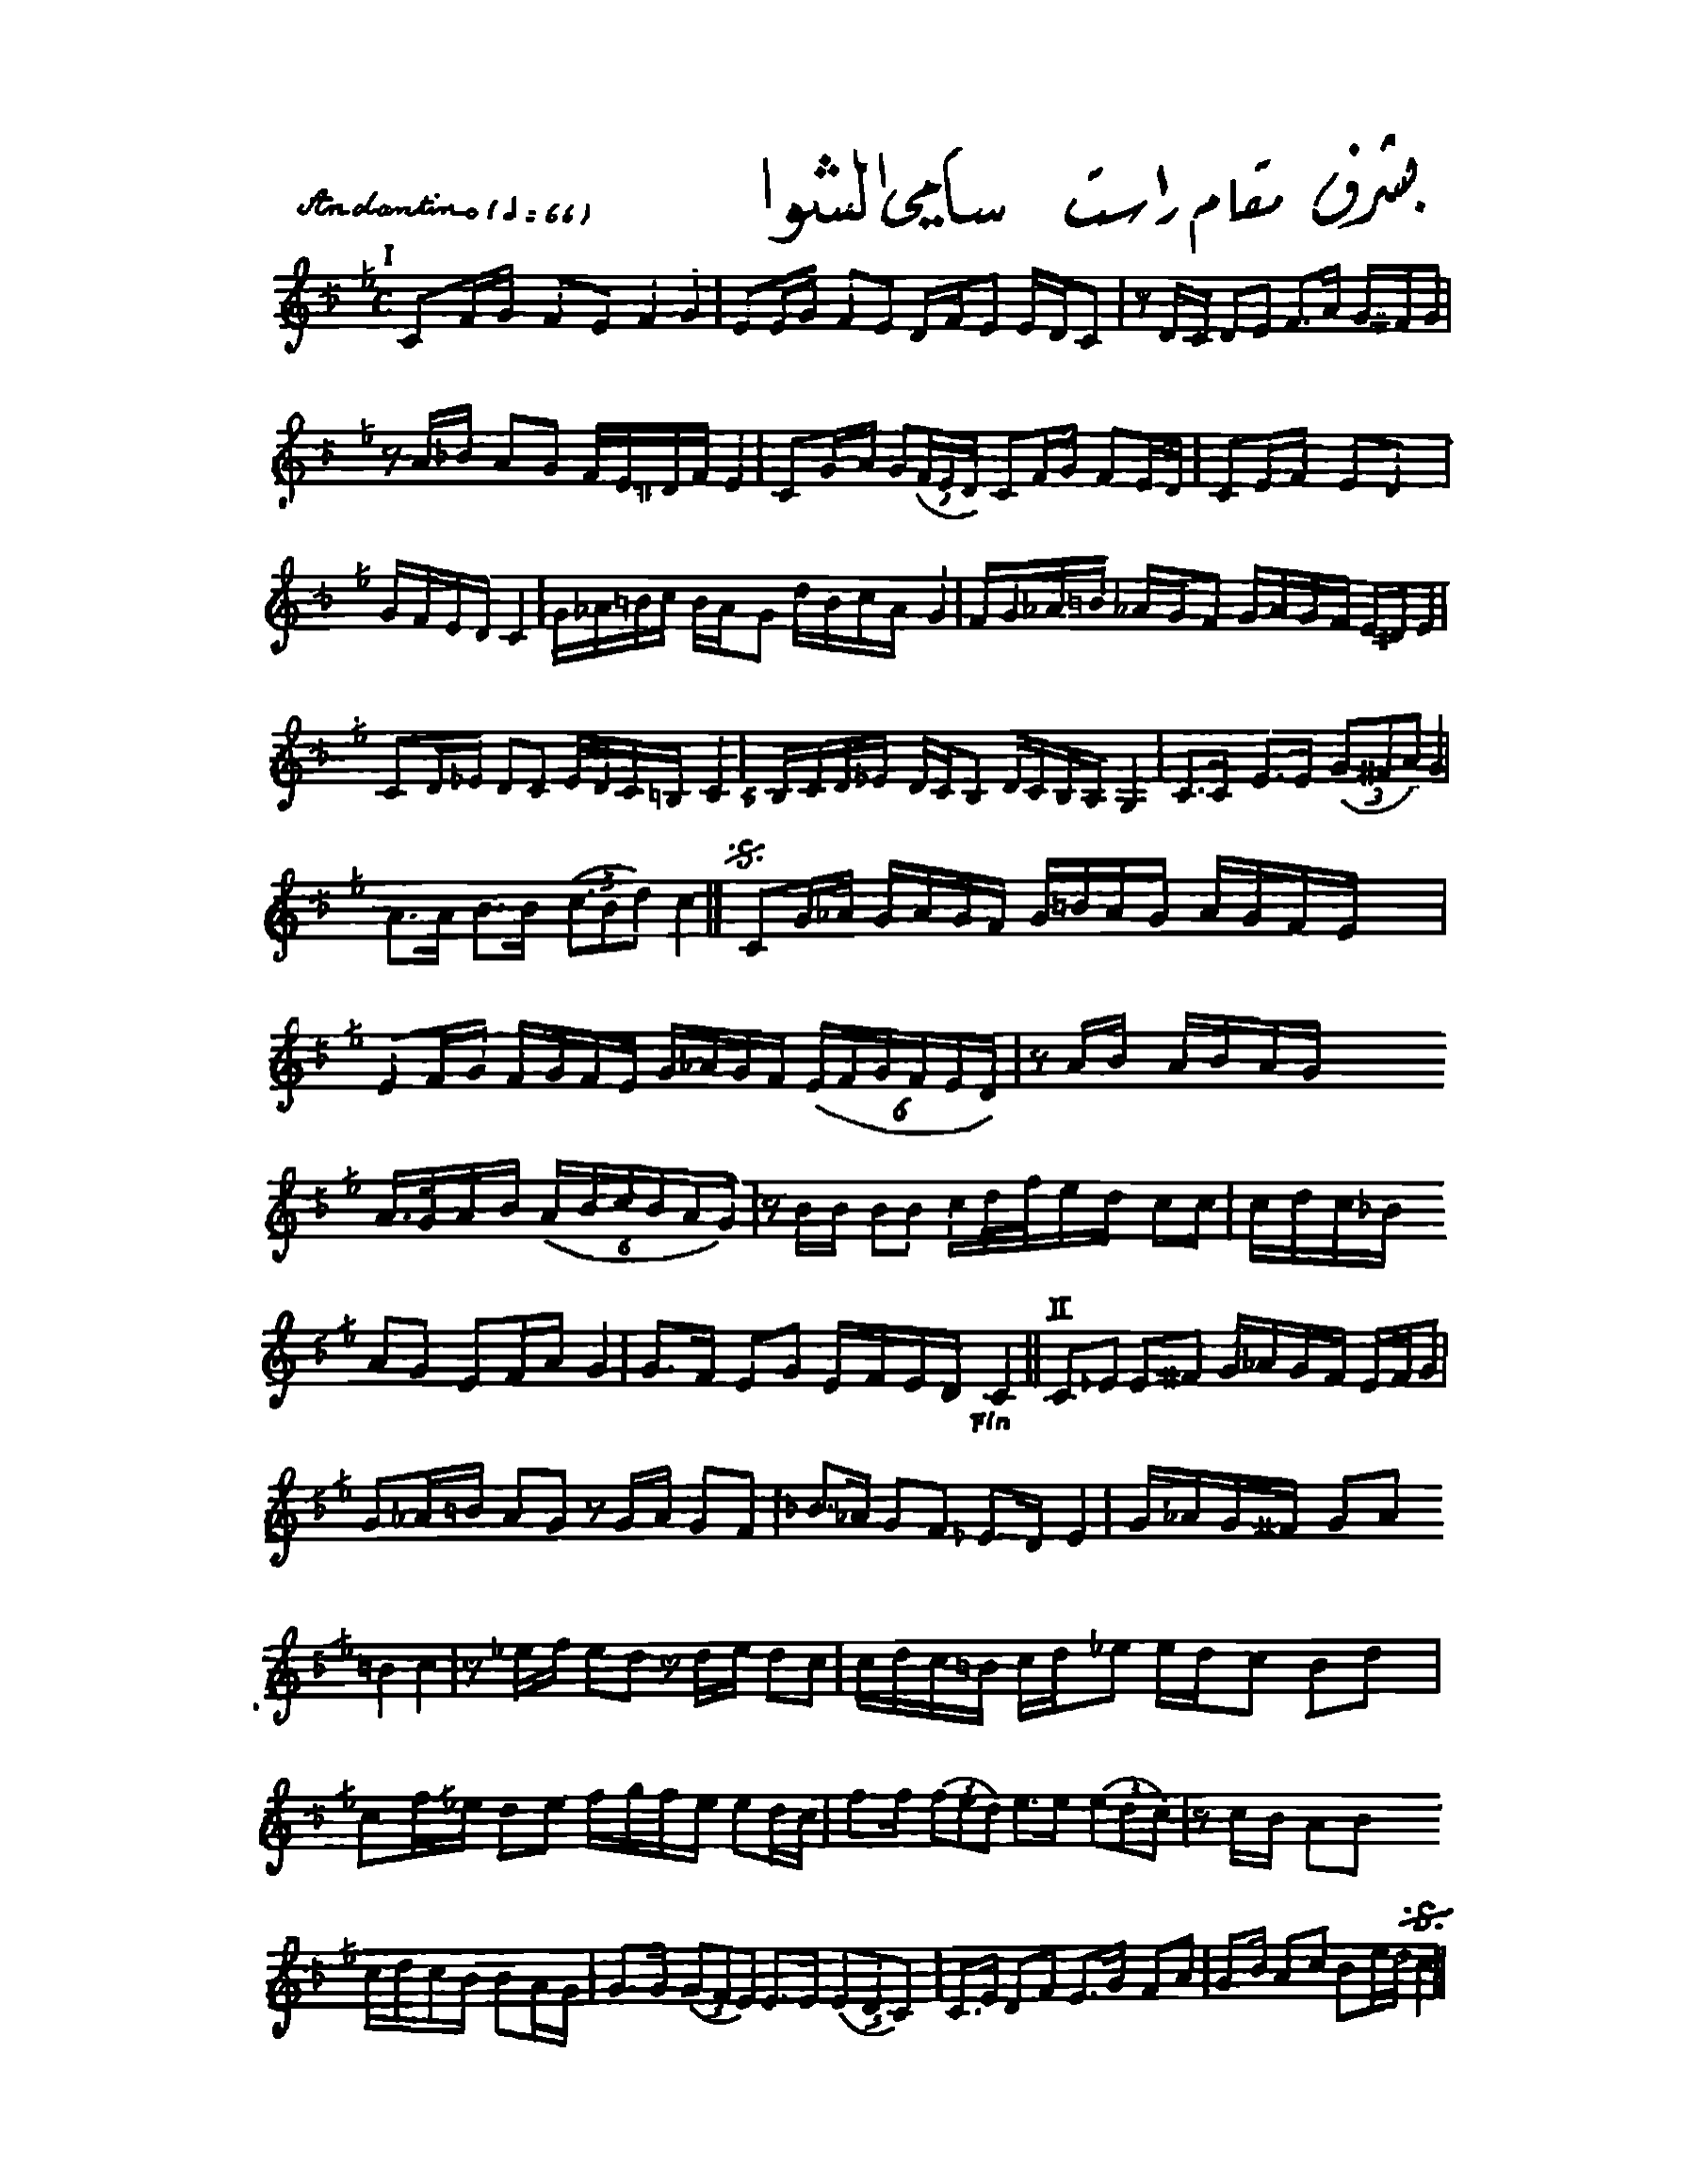 بشرف مقام راست سامي الشوا
Andantino (♩=66)
I
3
3
3
6
6
II
Fin
3
3
3
3